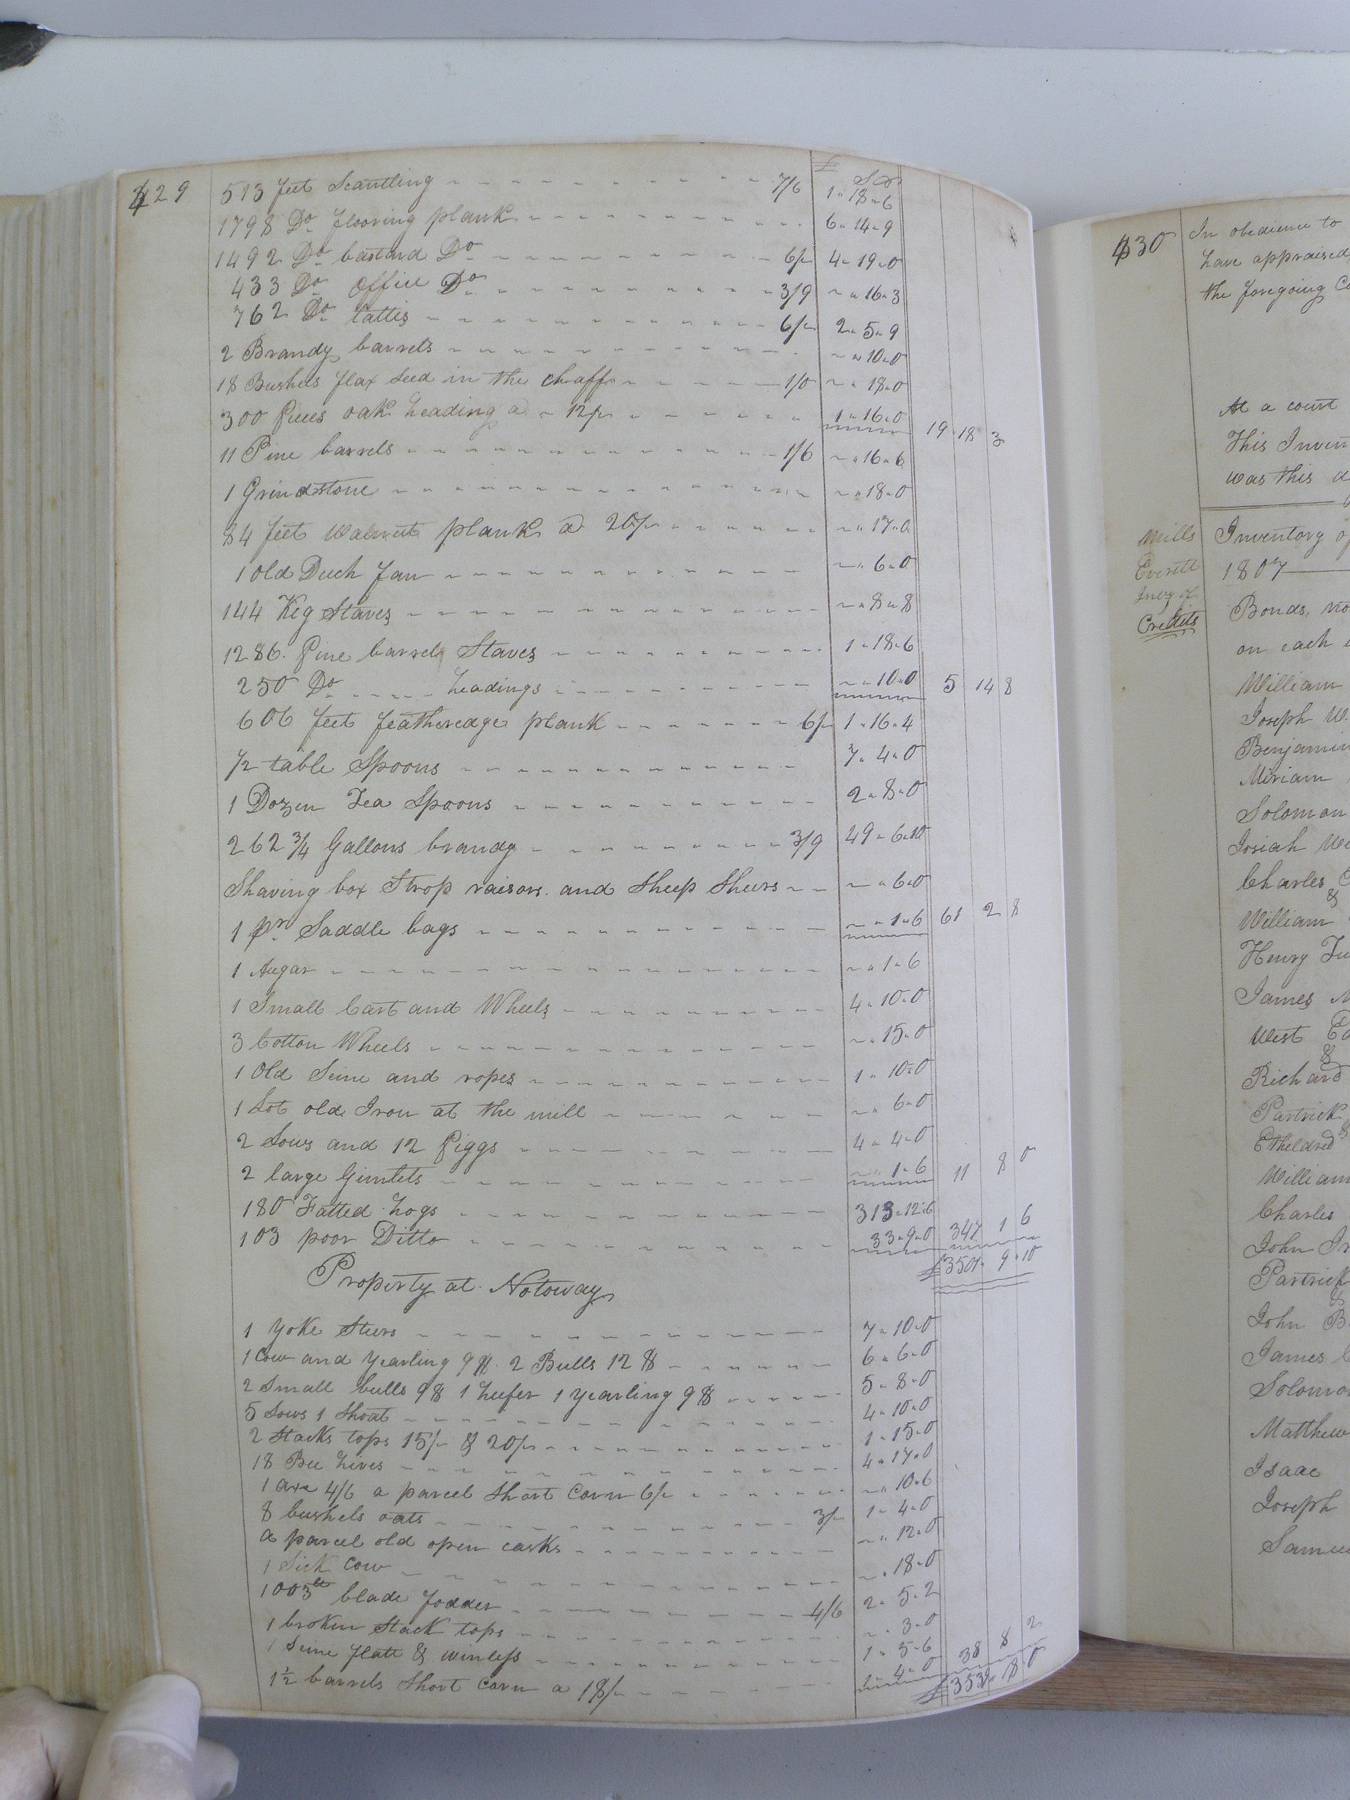 429
£ S D
513 feet Scantling 7/6 1 " 18 " 6
1798 Do flooring plank 6 " 14 " 9
1492 Do bastard Do 6/ 4 " 19 " 0
433 Do Office Do 3/9 " 16 " 3
762 Do 6/ 2 " 5 " 9
2 Brandy barrels " 10 " 0
18 Bushels flax Seed in the chaff 1/0 " 18 " 0
300 pieces oak heading @ 12/ 1 " 16 " 0 19 " 18 3
11 Pine barrels 1/6 " 16 " 6
1 Grindstone " 18 " 0
84 feet walnut plank @ 20/ " 17 " 0
1 Old Duch fan " 6 " 0
144 Keg Staves " 8 " 8
1286 Pine barrel Staves 1 " 18 " 6
250 Do headings " 10 " 0 5 14 8
606 feet featheredge plank 6/ 1 " 16 " 4
1/2 table Spoons 7 " 4 " 0
1 Dozen Tea Spoons 2 " 8 " 0
262 3/4 Gallons brandy 3/9 49 " 6 " 10
Shaving box Strop raisors and Sheep Shers " 6 " 0
1 pr Saddle bags " 1 " 6 61 2 8
1 Augar " 1 " 6
1 Small Cart and Wheels 4 " 10 " 0
3 Cotton Wheels " 15 " 0
1 Old Seine and ropes 1 " 10 " 0
1 Lot old Iron at the mill " 6 " 0
2 Sows and 12 Piggs 4 " 4 " 0
2 large Gimlets " 1 " 6 11 8 0
180 Fatted hogs 313 " 12 " 6
103 poor Ditto 33 " 9 " 0 347 1 6
9 " 10
Property at Notoway
1 Yoke Steers 7 " 10 " 0
1 Cow and Yearling 9$ 2 Bulls 12$ 6 " 6 " 0
2 Small bulls 9$ 1 heifer 1 yearling 9$ 5 " 8 " 0
5 Sows 1 Shoat 4 " 10 " 0
2 Stacks tops 15/ & 20/ 1 " 15 " 0
18 Bee hives 4 " 17 " 0
1 axe 4/6 a parcel Short Corn 6/ " 10 " 6
8 bushels oats 3/ 1 " 4 " 0
a parcel old open casks " 12 " 0
1 Sick Cow " 18 " 0
1003 lb blade fodder 4/6 2 " 5 " 2
1 broken Stack tops " 3 " 0
1 Seine flatt & 1 " 5 " 6 38 8 2
1 1/2 barrels Short Corn a 18/
430
In obedience to
have appraised
the foregoing
At a court
This Inven
was this
Mills
Everett
Invy of
Credits
Inventory of
1807
Bonds, no
on each
William
Joseph W
Benjamin
Miriam
Solomon
Josiah
Charles
&
William
Henry
James
West
&
Richard
Partrick
Etheldred &
William
Charles
John
Partrick
&
John B
James
Solomon
Matthew
Isaac
Joseph
Samue